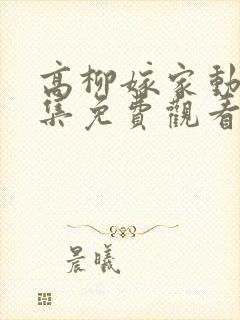 高柳嫁家動
集免費觀看
晨曦